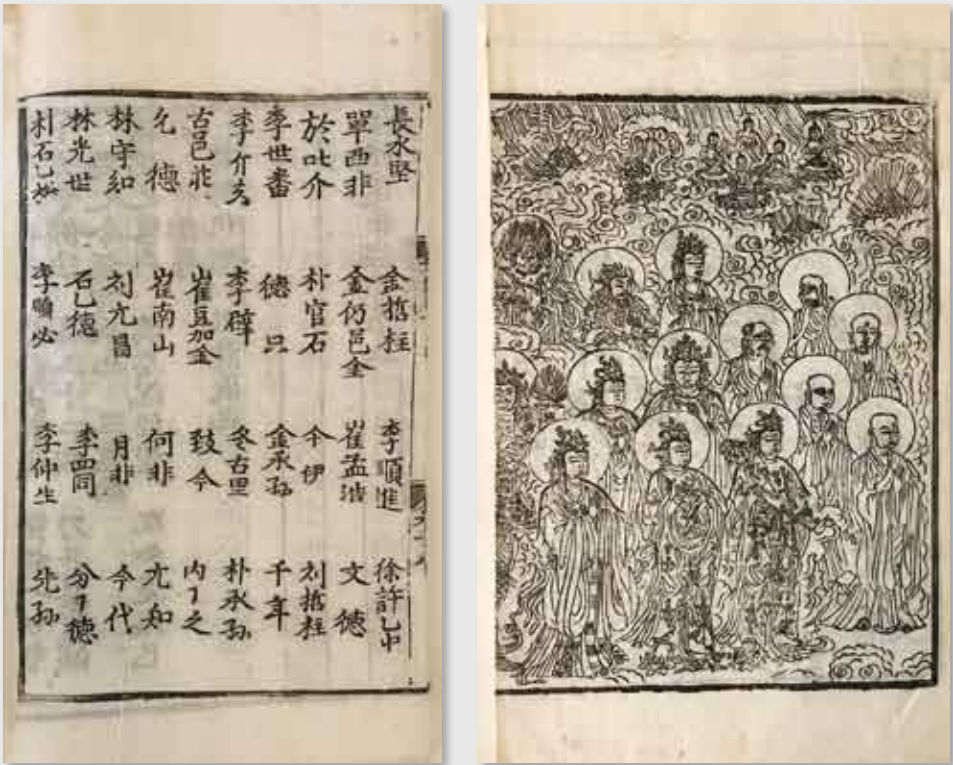 長水堅 金哲柱 李順進 徐許乙中
單西非 金仍邑金 崔孟浩 文德
於叱介 朴官石 伊 刘哲柱
李世番 德只 金承孙 千年
李介 李擗 冬古里 朴永孙
古邑非 崔豆加金 豉今 内了之
乞德 崔南山 何非 尤知
林守 刘尤昌 月非 今代
林光世 石乙德 李四同 分了德
朴石乙 李順必 李仲生 孙